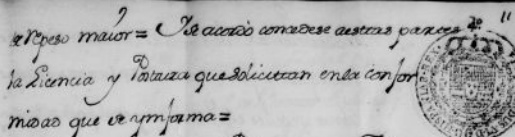 de repeso maior = Y se acordó concedese a estras partes
la Licencia y Postura que solicitran en la confor
midad que se ynforma =